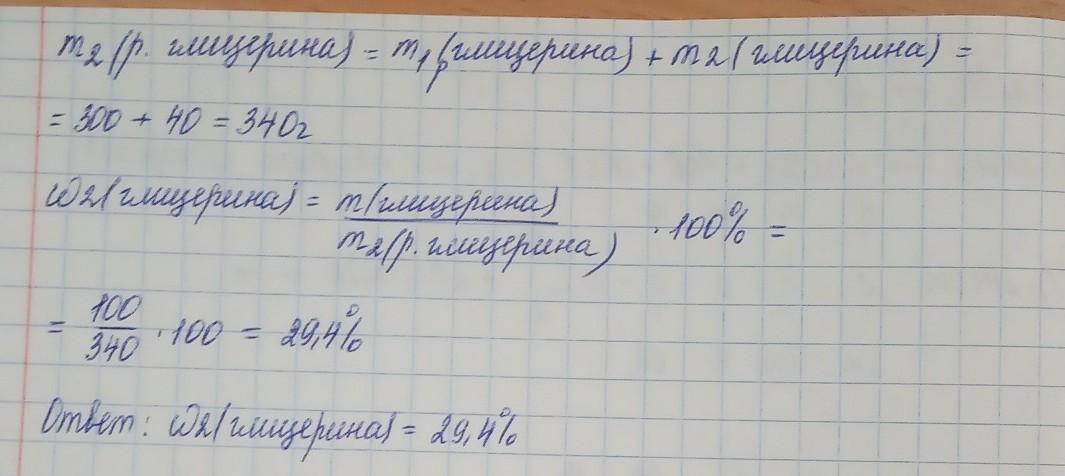 m₂(р. глицерина) = m₁(р глицерина) + m₂(глицерина) =
= 300 + 40 = 340г
ω₂(глицерина) = m(глицерина) / m₂(р. глицерина) · 100% =
= 100 / 340 · 100 = 29,4%
Ответ: ω₂(глицерина) = 29,4%